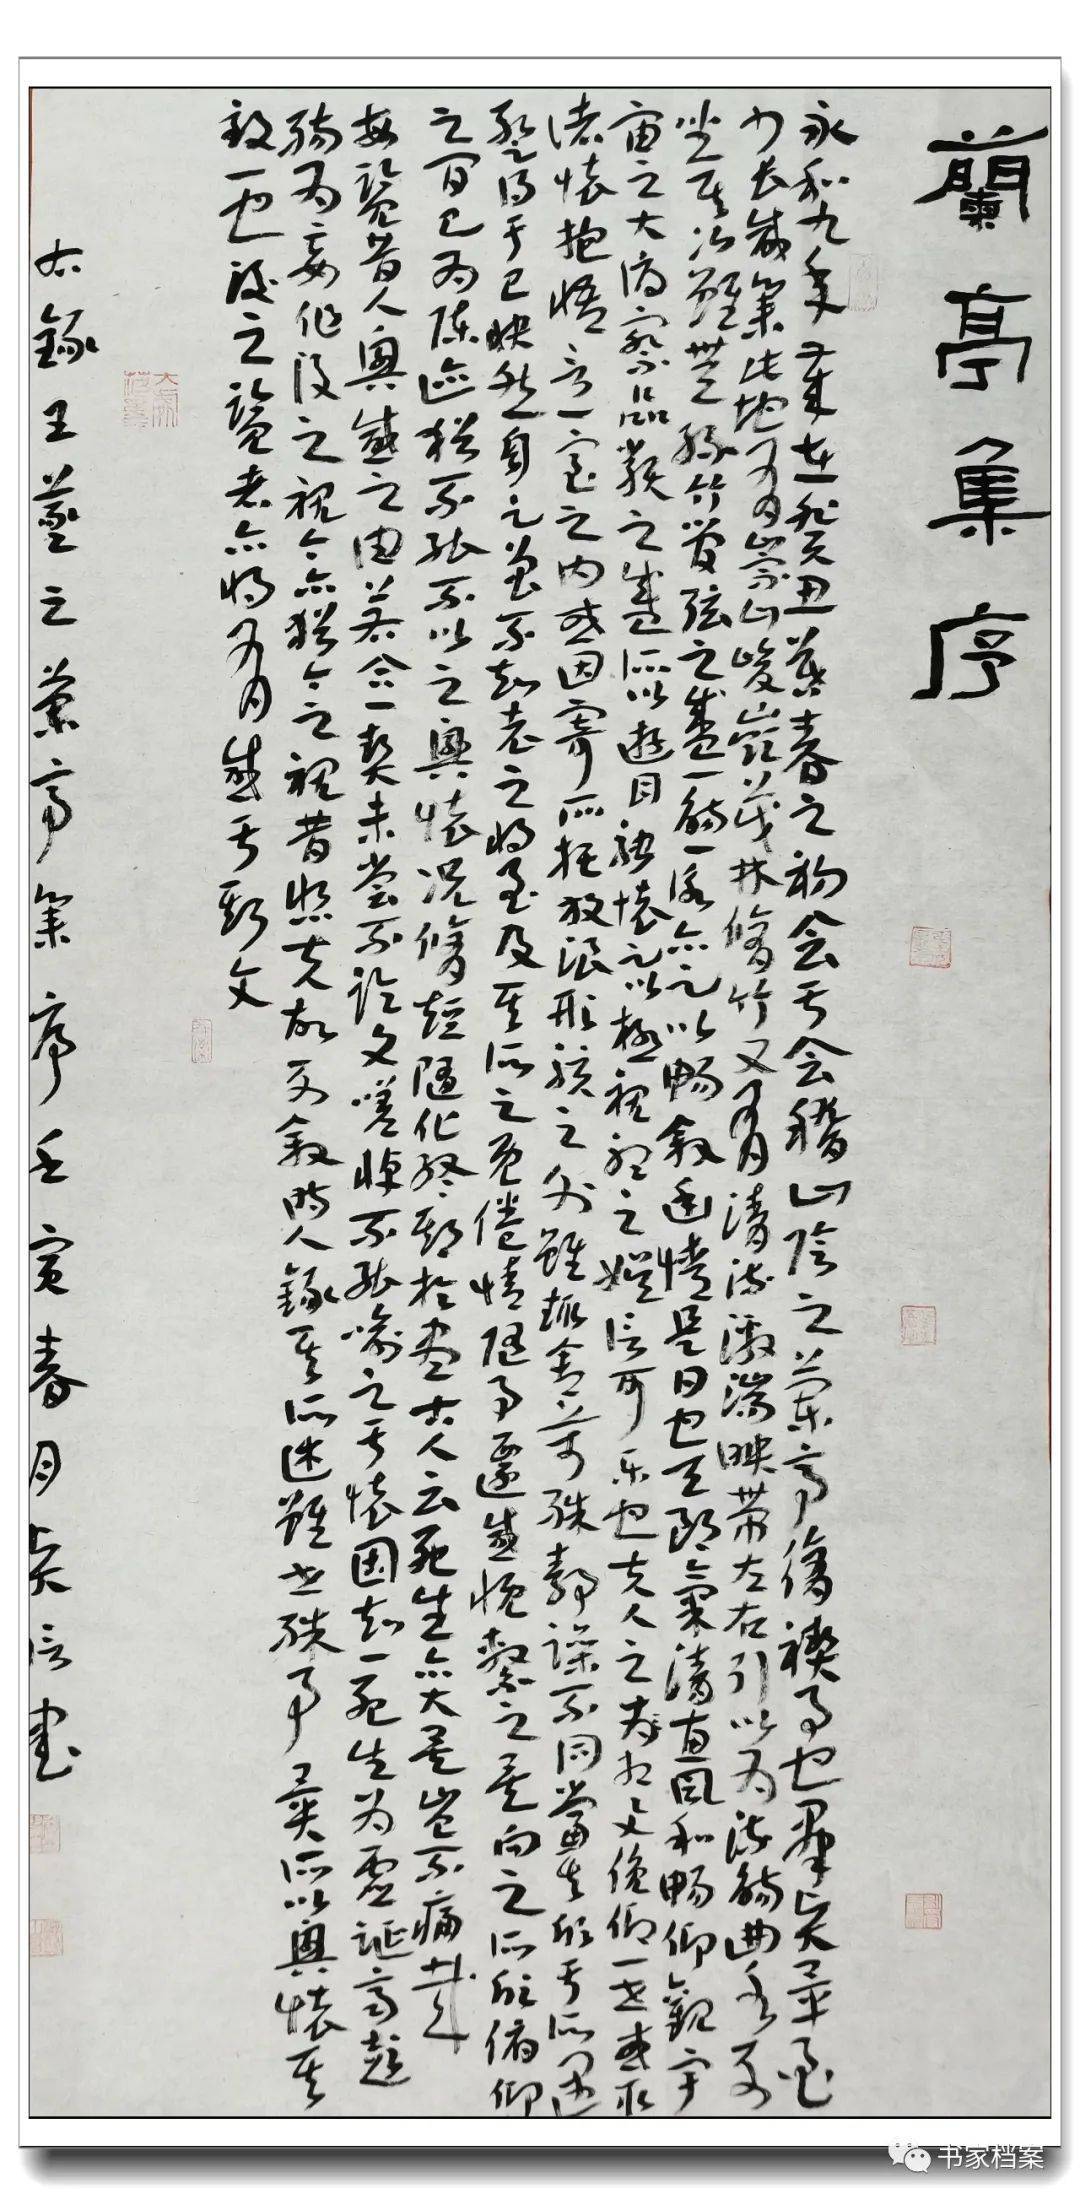 蘭亭集序
永和九年歲在癸丑暮春之初会于会稽山陰之蘭亭修禊事也群賢畢至
少长咸集此地有崇山峻嶺茂林修竹又有清流激湍映带左右引以为流觴曲水列
坐其次雖無絲竹管弦之盛一觴一詠亦足以畅叙幽情是日也天朗氣清惠风和畅仰觀宇
宙之大俯察品類之盛所以遊目騁懷足以極視聽之娛信可乐也夫人之相与俯仰一世或取
諸懷抱悟言一室之内或因寄所托放浪形骸之外雖趣舍萬殊靜躁不同當其欣于所遇
暫得于己快然自足曾不知老之將至及其所之既倦情隨事遷感慨繫之矣向之所欣俯仰
之间已为陳迹猶不能不以之興懷况修短隨化終期於盡古人云死生亦大矣豈不痛哉
每覽昔人興感之由若合一契未嘗不临文嗟悼不能喻之于懷固知一死生为虚誕齊彭
殤为妄作後之視今亦猶今之視昔悲夫故列叙时人錄其所述雖世殊事異所以興懷其
致一也後之覽者亦將有感于斯文
右錄王羲之蘭亭集序壬寅春月賢信書
书家档案